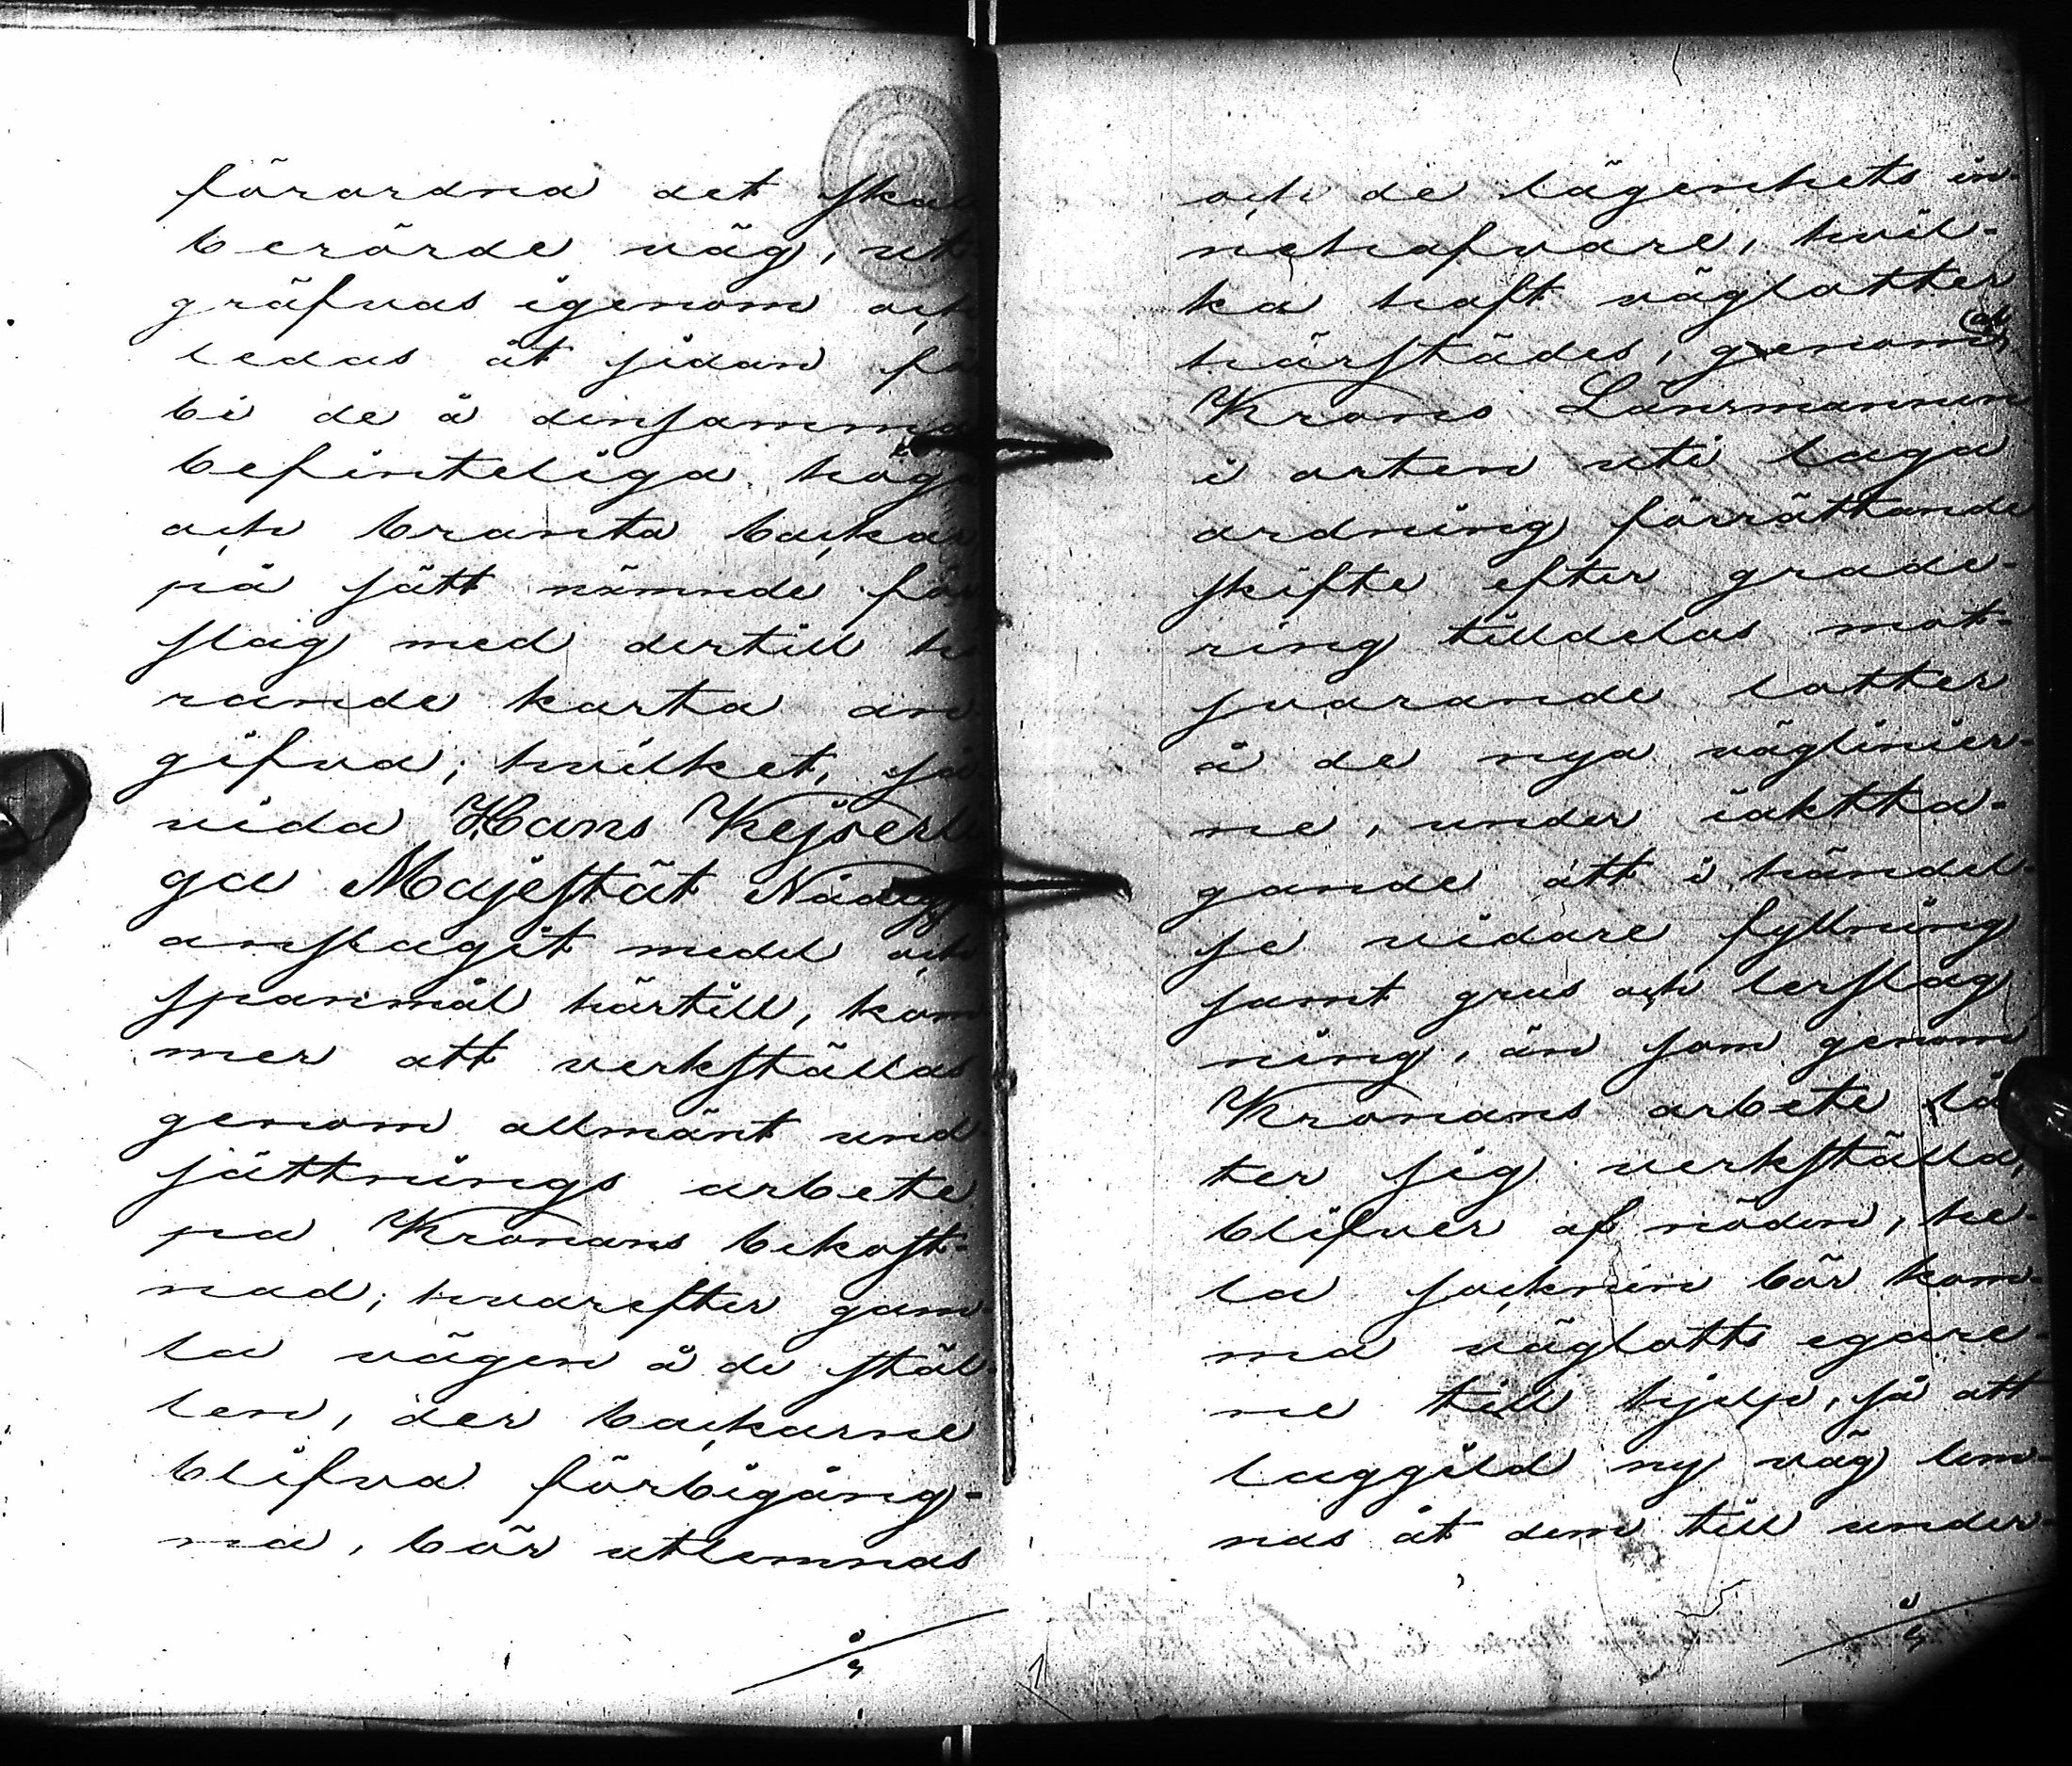 förordna det skall
berörde väg, ut-
gräfvas igenom och
ledas åt sidan för
bi de å densamma
befinteliga höga
och branta backar
på sätt nämnde för
slag med dertill hö
rande karta an
gifva; hvilket, så
vida Hans Kejserli
ga Majestät Nådigst
anslagit medel och
spanmål härtill, kom
mer att verkställas
genom allmänt und
sättnings arbete
på Kronans bekost-
nad; hvarefter gam-
la vägen å de stäl-
len, der backarne
blifva förbigång-
na, bör utlemnas
och de lägenhets in-
nehafvare, hvil-
ka haft väglotter
härstädes, genom
Krono Länsmannen
i orten uti laga
ordning förrättande
skifte efter grade-
ring tilldelas mot-
svarande lotter
å de nya väglinier-
ne, under iaktta-
gande att i händel-
se vidare fyllning
samt grus och lerslag
ning, än som genom
Kronans arbete lå
ter sig verkställa,
blifver af nöden, he-
la socknen bör kom-
ma väglotts egare-
ne till hjelp, så att
laggild ny väg lem-
nas åt dem till under-